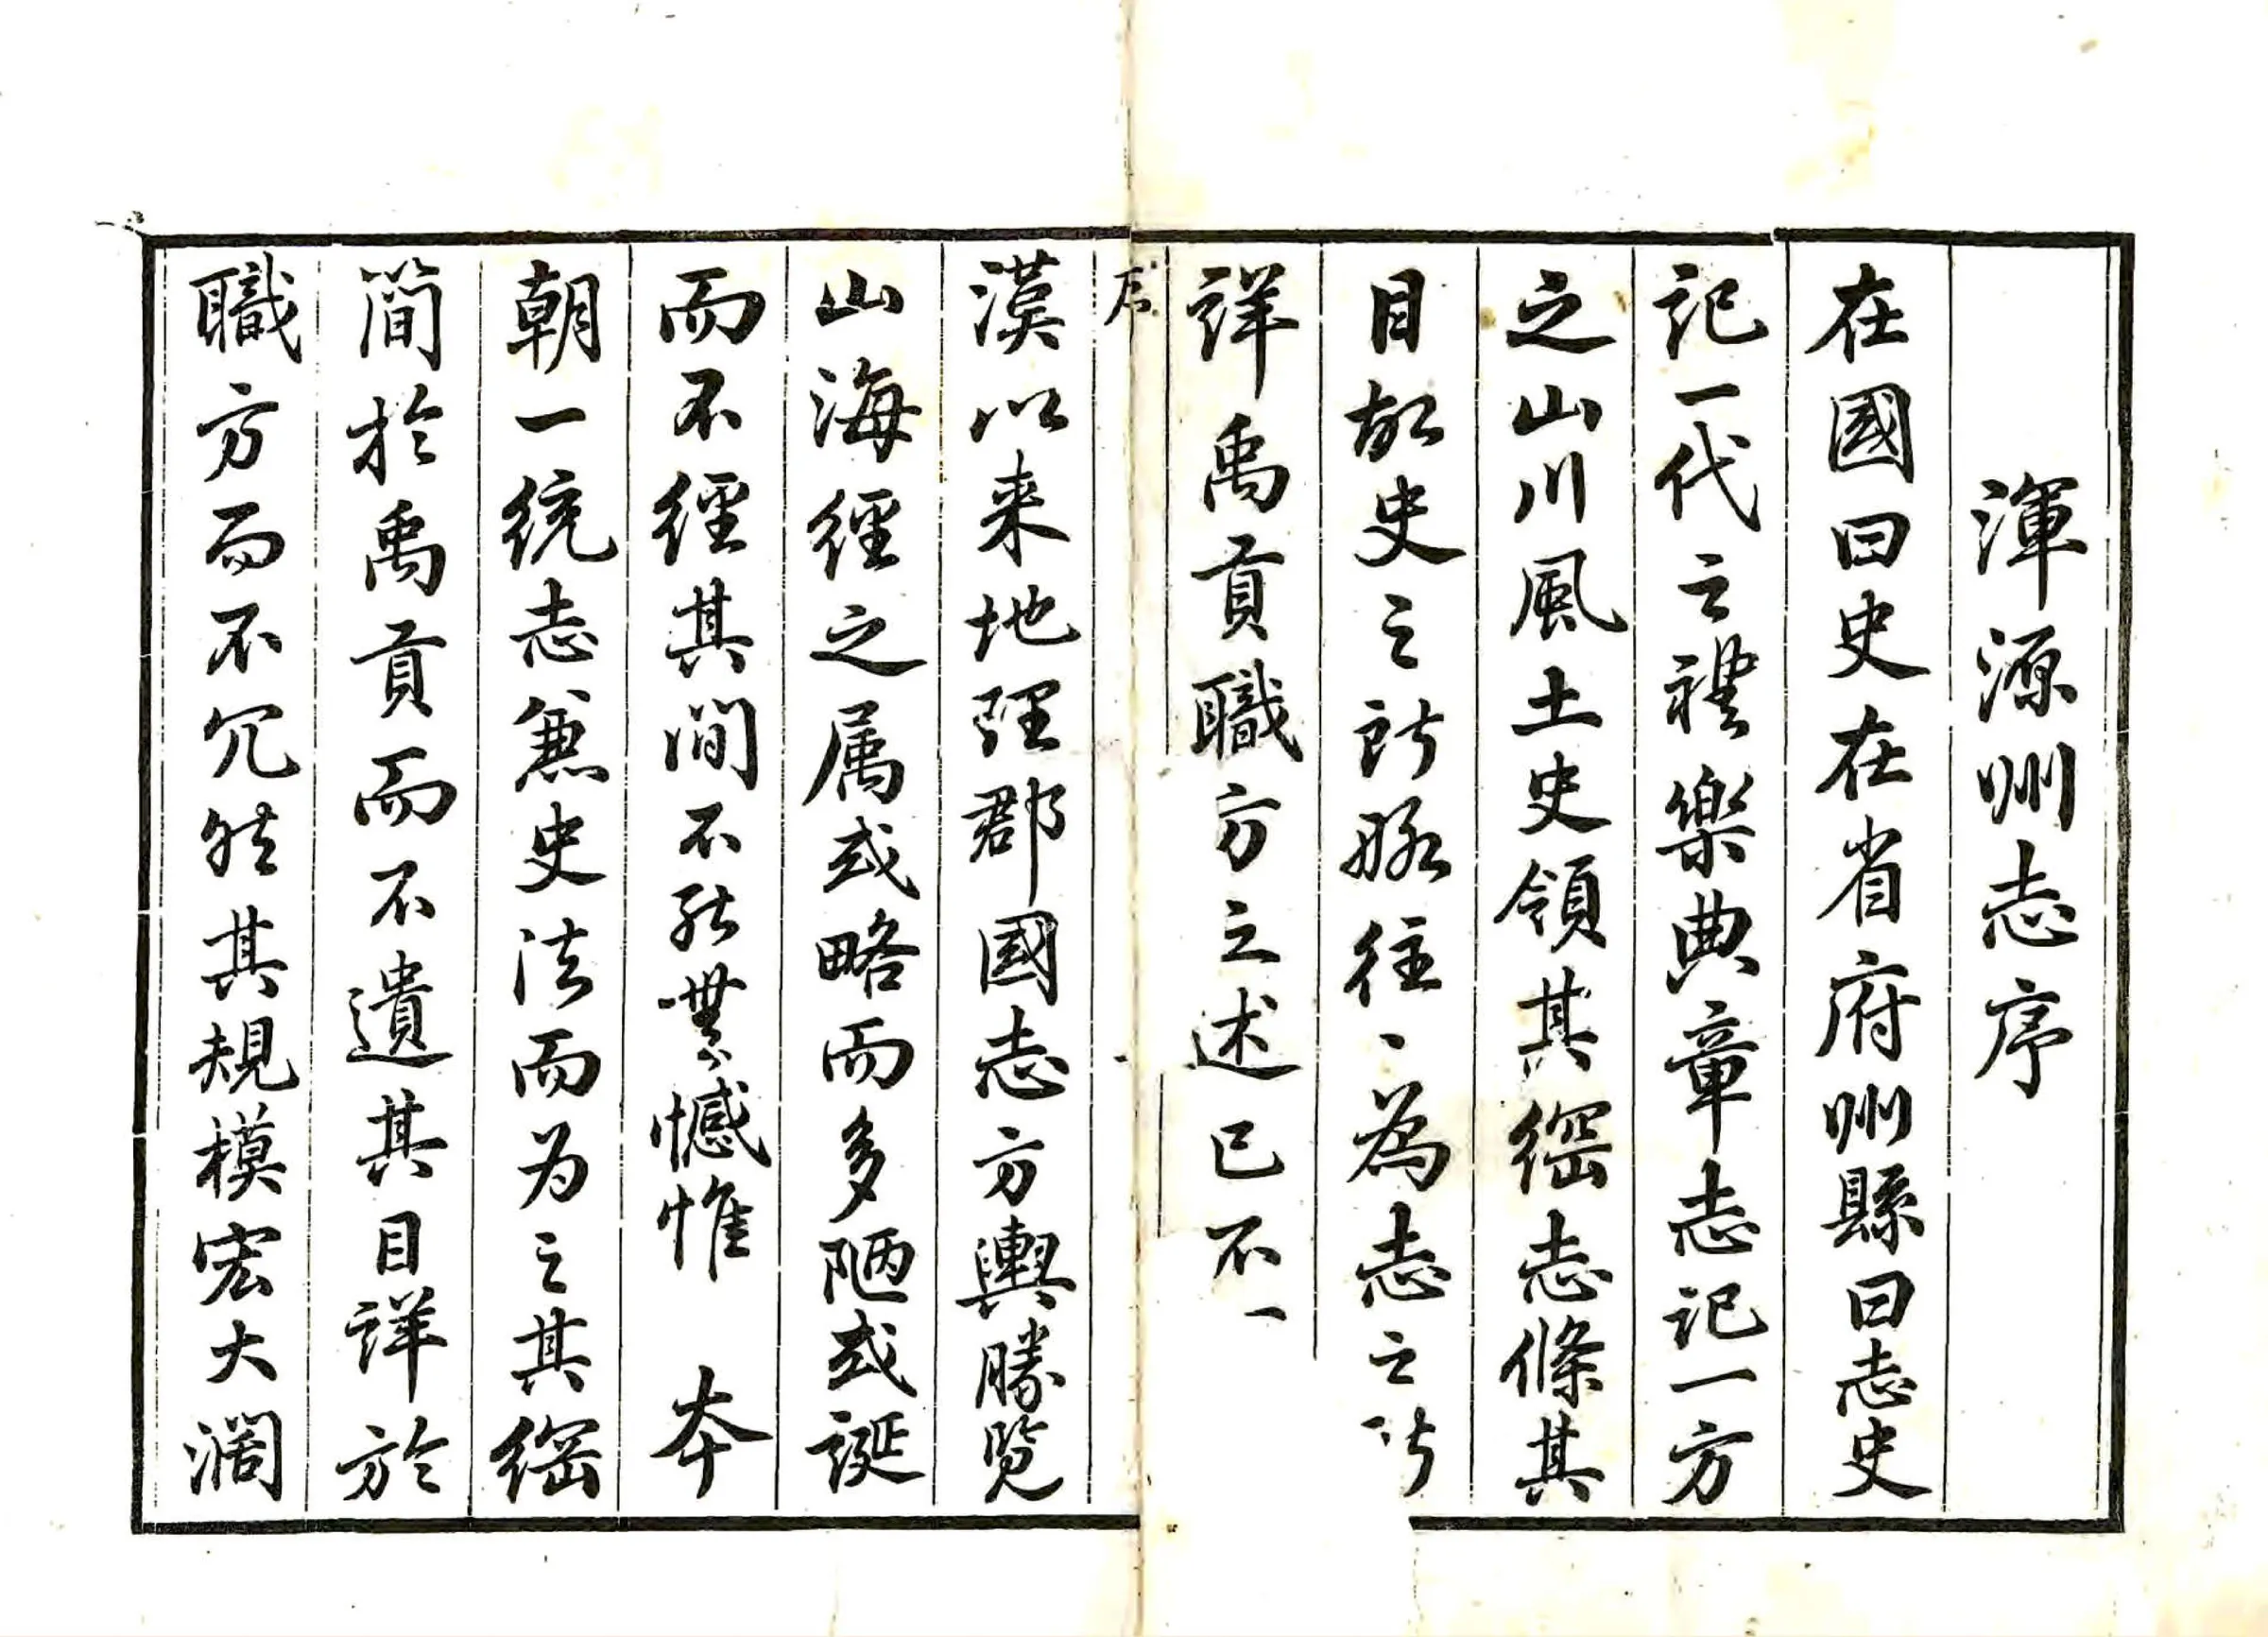 渾源州志序
在國曰史在省府州縣曰志史
記一代之禮樂典章志記一方
之山川風土史領其綱志條其
目故史之所略往〻為志之所
詳禹貢職方之述已不一
漢以来地理郡國志方輿勝覽
山海經之属或略而多陋或誕
而不經其間不能無憾惟　本
朝一統志兼史法而为之其綱
簡於禹貢而不遺其目詳於
職方而不冗然其規模宏大濶